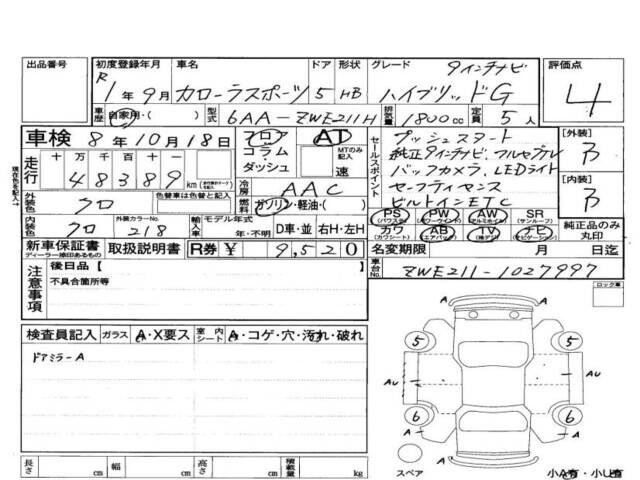 出品番号
初度登録年月 車名 ドア 形状 グレード 9インチナビ 評価点
R1年9月 カローラスポーツ 5 HB ハイブリッドG 4
車歴 自家用・( ) 型式 6AA-ZWE211H 排気量 1800cc 定員 5人
車検 8年10月18日 フロア・コラム・ダッシュ AT
MTのみ記入 速
走行 十万千百十一
48389km
現在色を記入→
冷房 AAC
外装色 クロ 色替車は色替前の色
燃料 ガソリン・軽油・( )
内装色 クロ 外装カラーNo. 218 輸入車 モデル年式 年・不明 D車・並 右H・左H
セールスポイント プッシュスタート
純正9インチナビ、フルセグTV
バックカメラ、LEDライト
セーフティセンス
ビルトインETC
[外装] B
[内装] B
PS (パワステ) PW (パワーウィンドウ) AW (アルミホイール) SR (サンルーフ)
カワ (カワシート) AB (エアバッグ) TV ナビ (ナビゲーション)
純正品のみ丸印
新車保証書 ディーラー捺印あるもの 取扱説明書 R券 ¥ 9,520
名変期限 月 日迄
車台No. ZWE211-1027997
注意事項 後日品【 】
不具合箇所等
ロック車
検査員記入 ガラス A・X要ス 室内シート A・コゲ・穴・汚れ・破れ
ドアミラーA
5 5
A
AU AU
A
6 6
A
長さ cm 幅 cm 高さ cm 積載量 kg
スペア
小A有・小U有